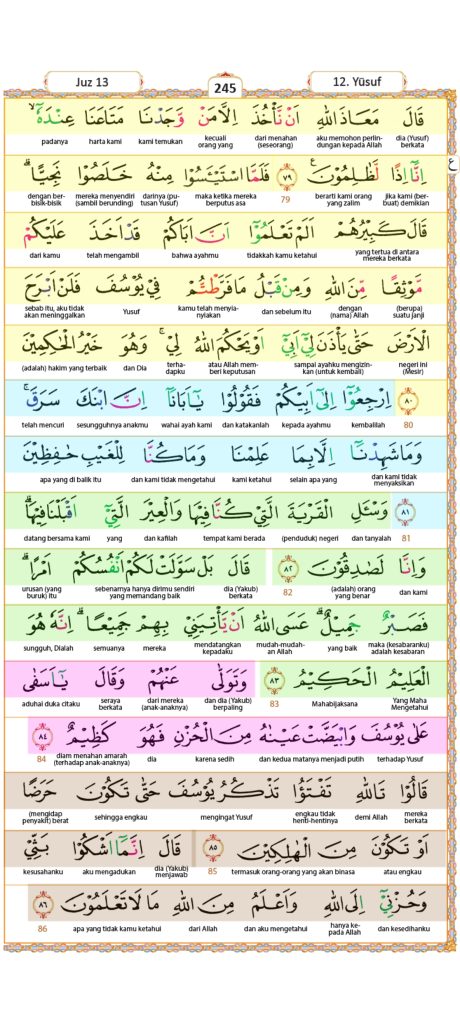 Juz 13
245
12. Yūsuf
قَالَ مَعَاذَ اللّٰهِ اَنْ نَّأْخُذَ اِلَّا مَنْ وَّجَدْنَا مَتَاعَنَا عِنْدَهٗٓ ۙ
dia (Yusuf) berkata aku memohon perlindungan kepada Allah dari menahan (seseorang) kecuali orang yang kami temukan harta kami padanya
ع
اِنَّآ اِذًا لَّظٰلِمُوْنَ ࣖ ٧٩ فَلَمَّا اسْتَيْـَٔسُوْا مِنْهُ خَلَصُوْا نَجِيًّاۗ
jika kami (berbuat) demikian berarti kami orang yang zalim 79 maka ketika mereka berputus asa darinya (putusan Yusuf) mereka menyendiri (sambil berunding) dengan berbisik-bisik
قَالَ كَبِيْرُهُمْ اَلَمْ تَعْلَمُوْٓا اَنَّ اَبَاكُمْ قَدْ اَخَذَ عَلَيْكُمْ
yang tertua di antara mereka berkata tidakkah kamu ketahui bahwa ayahmu telah mengambil dari kamu
مَّوْثِقًا مِّنَ اللّٰهِ وَمِنْ قَبْلُ مَا فَرَّطْتُّمْ فِيْ يُوْسُفَ فَلَنْ اَبْرَحَ
(berupa) suatu janji dengan (nama) Allah dan sebelum itu kamu telah menyia-nyiakan Yusuf sebab itu, aku tidak akan meninggalkan
الْاَرْضَ حَتّٰى يَأْذَنَ لِيْٓ اَبِيْٓ اَوْ يَحْكُمَ اللّٰهُ لِيْۚ وَهُوَ خَيْرُ الْحٰكِمِيْنَ
negeri ini (Mesir) sampai ayahku mengizinkan (untuk kembali) atau Allah memberi keputusan terhadapku dan Dia (adalah) hakim yang terbaik
٨٠ اِرْجِعُوْٓا اِلٰٓى اَبِيْكُمْ فَقُوْلُوْا يٰٓاَبَانَآ اِنَّ ابْنَكَ سَرَقَۚ
80 kembalilah kepada ayahmu dan katakanlah wahai ayah kami sesungguhnya anakmu telah mencuri
وَمَا شَهِدْنَآ اِلَّا بِمَا عَلِمْنَا وَمَا كُنَّا لِلْغَيْبِ حٰفِظِيْنَ
dan kami tidak menyaksikan selain apa yang kami ketahui dan kami tidak mengetahui apa yang di balik itu
٨١ وَسْـَٔلِ الْقَرْيَةَ الَّتِيْ كُنَّا فِيْهَا وَالْعِيْرَ الَّتِيْٓ اَقْبَلْنَا فِيْهَاۗ
81 dan tanyalah (penduduk) negeri tempat kami berada dan kafilah yang datang bersama kami
وَاِنَّا لَصٰدِقُوْنَ ٨٢ قَالَ بَلْ سَوَّلَتْ لَكُمْ اَنْفُسُكُمْ اَمْرًاۗ
dan kami (adalah) orang yang benar 82 dia (Yakub) berkata sebenarnya hanya dirimu sendiri yang memandang baik urusan (yang buruk) itu
فَصَبْرٌ جَمِيْلٌۗ عَسَى اللّٰهُ اَنْ يَّأْتِيَنِيْ بِهِمْ جَمِيْعًاۗ اِنَّهٗ هُوَ
maka (kesabaranku) adalah kesabaran yang baik mudah-mudahan Allah mendatangkan kepadaku mereka semuanya sungguh, Dialah
الْعَلِيْمُ الْحَكِيْمُ ٨٣ وَتَوَلّٰى عَنْهُمْ وَقَالَ يٰٓاَسَفٰى
Yang Maha Mengetahui Mahabijaksana 83 dan dia (Yakub) berpaling dari mereka (anak-anaknya) seraya berkata aduhai duka citaku
عَلٰى يُوْسُفَ وَابْيَضَّتْ عَيْنٰهُ مِنَ الْحُزْنِ فَهُوَ كَظِيْمٌ ٨٤
terhadap Yusuf dan kedua matanya menjadi putih karena sedih dia diam menahan amarah (terhadap anak-anaknya) 84
قَالُوْا تَاللّٰهِ تَفْتَؤُا تَذْكُرُ يُوْسُفَ حَتّٰى تَكُوْنَ حَرَضًا
mereka berkata demi Allah engkau tidak henti-hentinya mengingat Yusuf sehingga engkau (mengidap penyakit) berat
اَوْ تَكُوْنَ مِنَ الْهٰلِكِيْنَ ٨٥ قَالَ اِنَّمَآ اَشْكُوْا بَثِّيْ
atau engkau termasuk orang-orang yang akan binasa 85 dia (Yakub) menjawab aku mengadukan kesusahanku
وَحُزْنِيْٓ اِلَى اللّٰهِ وَاَعْلَمُ مِنَ اللّٰهِ مَا لَا تَعْلَمُوْنَ ٨٦
dan kesedihanku hanya kepada Allah dan aku mengetahui dari Allah apa yang tidak kamu ketahui 86